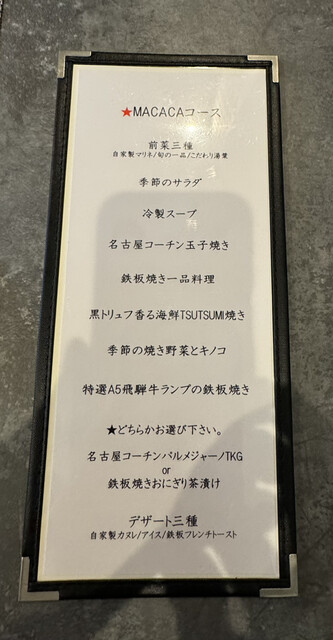 ★MACACAコース
前菜三種
自家製マリネ/旬の一品/こだわり湯葉
季節のサラダ
冷製スープ
名古屋コーチン玉子焼き
鉄板焼き一品料理
黒トリュフ香る海鮮TSUTSUMI焼き
季節の焼き野菜とキノコ
特選A5飛騨牛ランプの鉄板焼き
★どちらかお選び下さい。
名古屋コーチンパルメジャーノTKG
or
鉄板焼きおにぎり茶漬け
デザート三種
自家製カヌレ/アイス/鉄板フレンチトースト